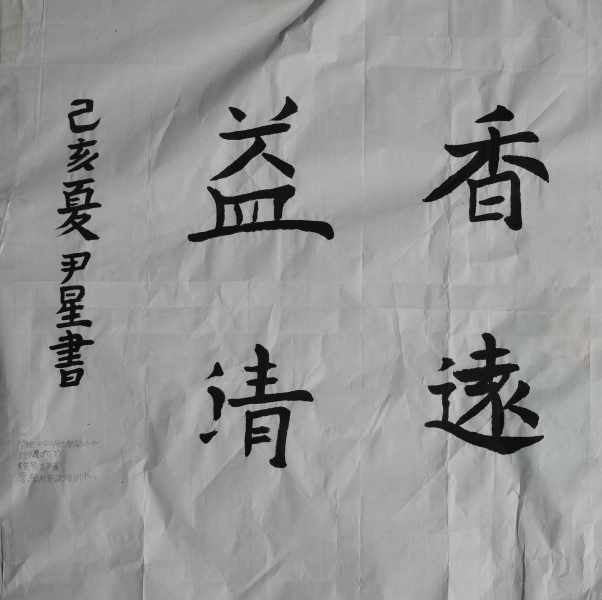 香遠
益清
己亥夏 尹星書